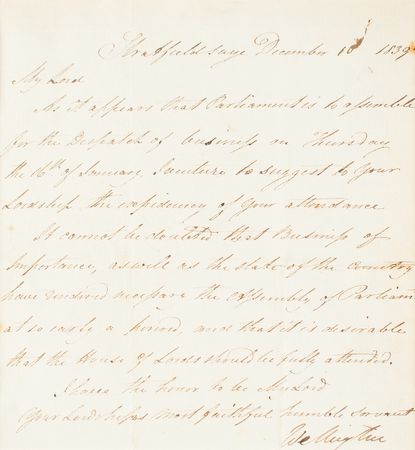 Stratfield Saye December 18 1839
My Lord
As it appears that Parliament is to assemble
for the Despatch of business on Thursday
the 16th of January, I venture to suggest to Your
Lordship the expediency of Your attendance
It cannot be doubted that Business of
Importance, as well as the state of the country
have rendered necessary the assembly of Parliam
at so early a period, and that it is desirable
that the House of Lords should be fully attended.
I have the honor to be My Lord
Your Lordships most faithful humble servant
Wellington